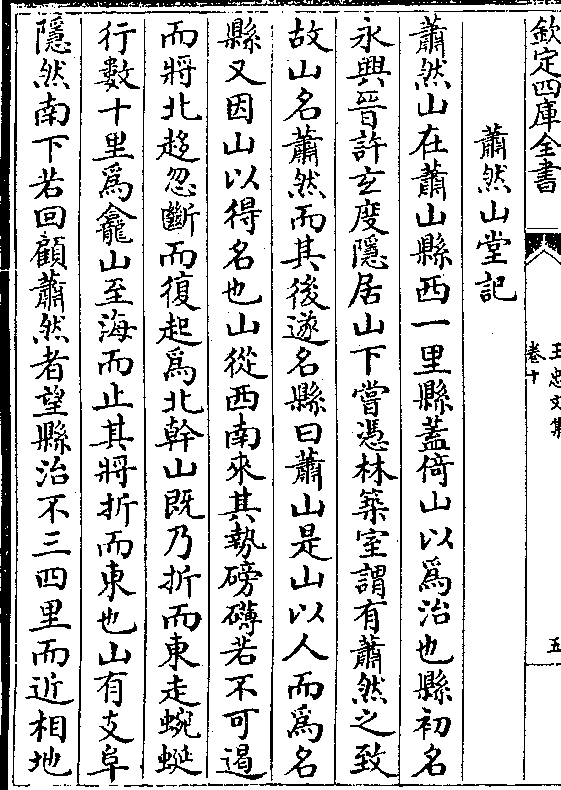 欽定四庫全書
王忠文集
卷十
五
蕭然山堂記
蕭然山在蕭山縣西一里縣蓋倚山以爲治也縣初名
永興晉許玄度隱居山下嘗憑林築室謂有蕭然之致
故山名蕭然而其後遂名縣曰蕭山是山以人而爲名
縣又因山以得名也山從西南來其執磅礴若不可遏
而將北趍忽斷而復起爲北幹山既乃折而東走蜿蜒
行數十里爲龕山至海而止其將折而東也山有支阜
隱然南下若回顧蕭然者望縣治不三四里而近相地